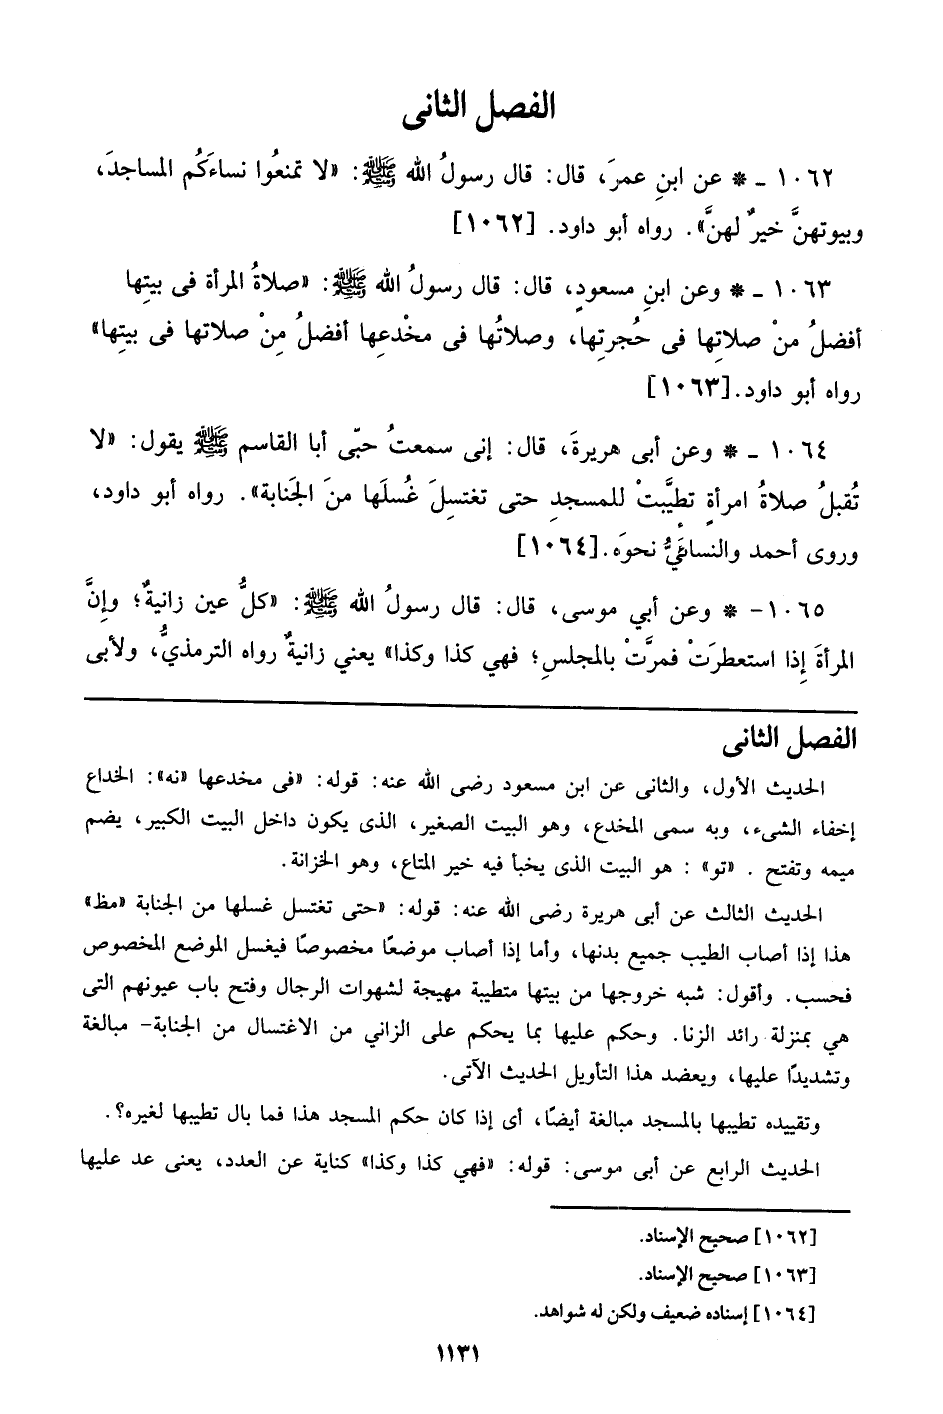 الفصل الثانى
١٠٦٢ ـ * عن ابنِ عمرَ، قال: قال رسولُ الله ﷺ: «لا تمنعُوا نساءَكُم المساجدَ،
وبيوتهنَّ خيرٌ لهنَّ». رواه أبو داود. [١٠٦٢]
١٠٦٣ ـ * وعن ابنِ مسعودٍ، قال: قال رسولُ الله ﷺ: «صلاةُ المرأة فى بيتِها
أفضلُ منْ صلاتِها فى حُجرتِها، وصلاتُها فى مخْدعِها أفضلُ مِنْ صلاتها فى بيتِها»
رواه أبو داود.[١٠٦٣]
١٠٦٤ ـ * وعن أبى هريرةَ، قال: إنى سمعتُ حبّى أبا القاسم ﷺ يقول: «لا
تُقبلُ صلاةُ امرأةٍ تطيَّبتْ للمسجدِ حتى تغتسلَ غُسلَها منَ الجَنابة». رواه أبو داود،
وروى أحمد والنسائيُّ نحوَه.[١٠٦٤]
١٠٦٥- * وعن أبي موسى، قال: قال رسولُ الله ﷺ: «كلُّ عين زانيةٌ؛ وإنَّ
المرأةَ إذا استعطرَتْ فمرَّتْ بالمجلسِ؛ فهي كذا وكذا» يعني زانيةٌ رواه الترمذيُّ، ولأبى
الفصل الثانى
الحديث الأول، والثانى عن ابن مسعود رضى الله عنه: قوله: «فى مخدعها «نه»: الخداع
إخفاء الشىء، وبه سمى المخدع، وهو البيت الصغير، الذى يكون داخل البيت الكبير، يضم
ميمه وتفتح . «تو» : هو البيت الذى يخبأ فيه خير المتاع، وهو الخزانة.
الحديث الثالث عن أبى هريرة رضى الله عنه: قوله: «حتى تغتسل غسلها من الجنابة «مظ»
هذا إذا أصاب الطيب جميع بدنها، وأما إذا أصاب موضعًا مخصوصًا فيغسل الموضع المخصوص
فحسب. وأقول: شبه خروجها من بيتها متطيبة مهيجة لشهوات الرجال وفتح باب عيونهم التى
هي بمنزلة رائد الزنا. وحكم عليها بما يحكم على الزاني من الاغتسال من الجنابة- مبالغة
وتشديدًا عليها، ويعضد هذا التأويل الحديث الآتى.
وتقييده تطيبها بالمسجد مبالغة أيضًا، أى إذا كان حكم المسجد هذا فما بال تطيبها لغيره؟.
الحديث الرابع عن أبى موسى: قوله: «فهي كذا وكذا» كناية عن العدد، يعنى عد عليها
[١٠٦٢] صحيح الإسناد.
[١٠٦٣] صحيح الإسناد.
[١٠٦٤] إسناده ضعيف ولكن له شواهد.
١١٣١